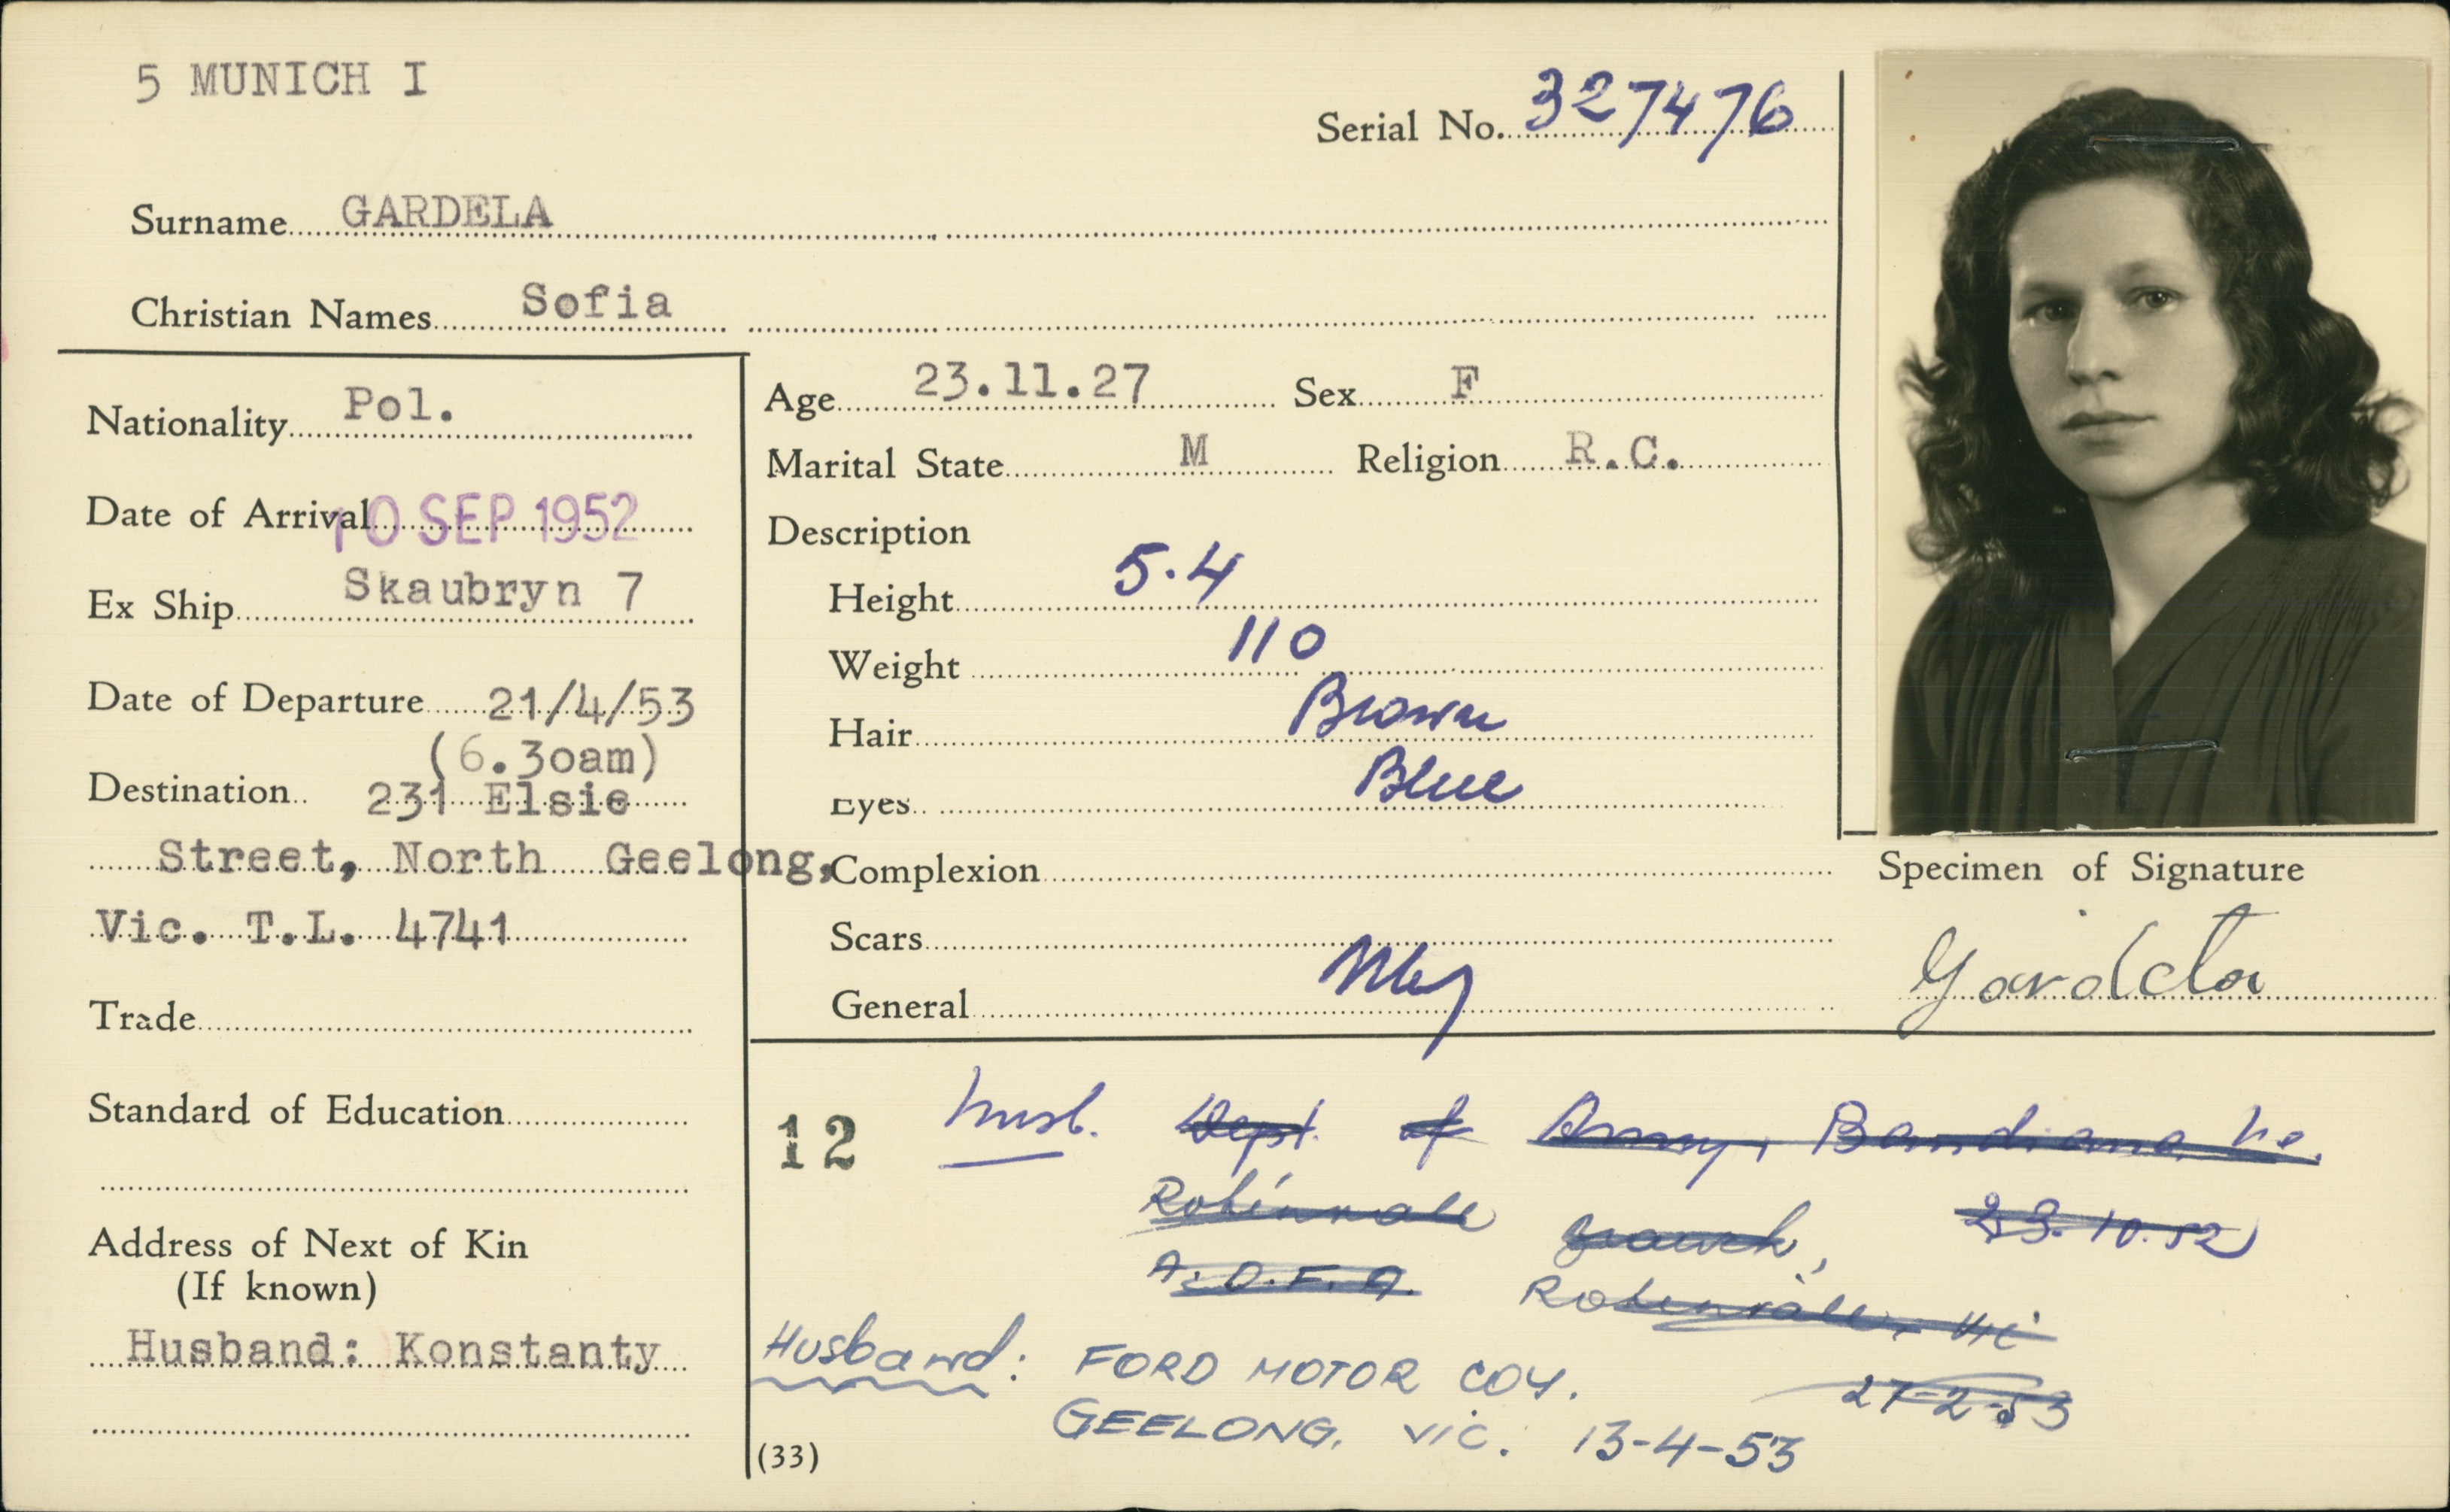 5 MUNICH I
Serial No. 327476
Surname GARDELA
Christian Names Sofia
Nationality Pol.
Date of Arrival 10 SEP 1952
Ex Ship Skaubryn 7
Date of Departure 21/4/53
(6.30am)
Destination 231 Elsie
Street, North Geelong,
Vic. T.L. 4741
Trade
Standard of Education
Address of Next of Kin
(If known)
Husband: Konstanty
Age 23.11.27 Sex F
Marital State M Religion R.C.
Description
Height 5.4
Weight 110
Hair Brown
Eyes Blue
Complexion
Scars
General
Specimen of Signature
Gardela
12 Husb. Dept. of Army, Bandiana
Robinvale 23.10.52
A.D.F.A. Robinvale, Vic
27-2-53
Husband: FORD MOTOR COY.
GEELONG. VIC. 13-4-53
(33)